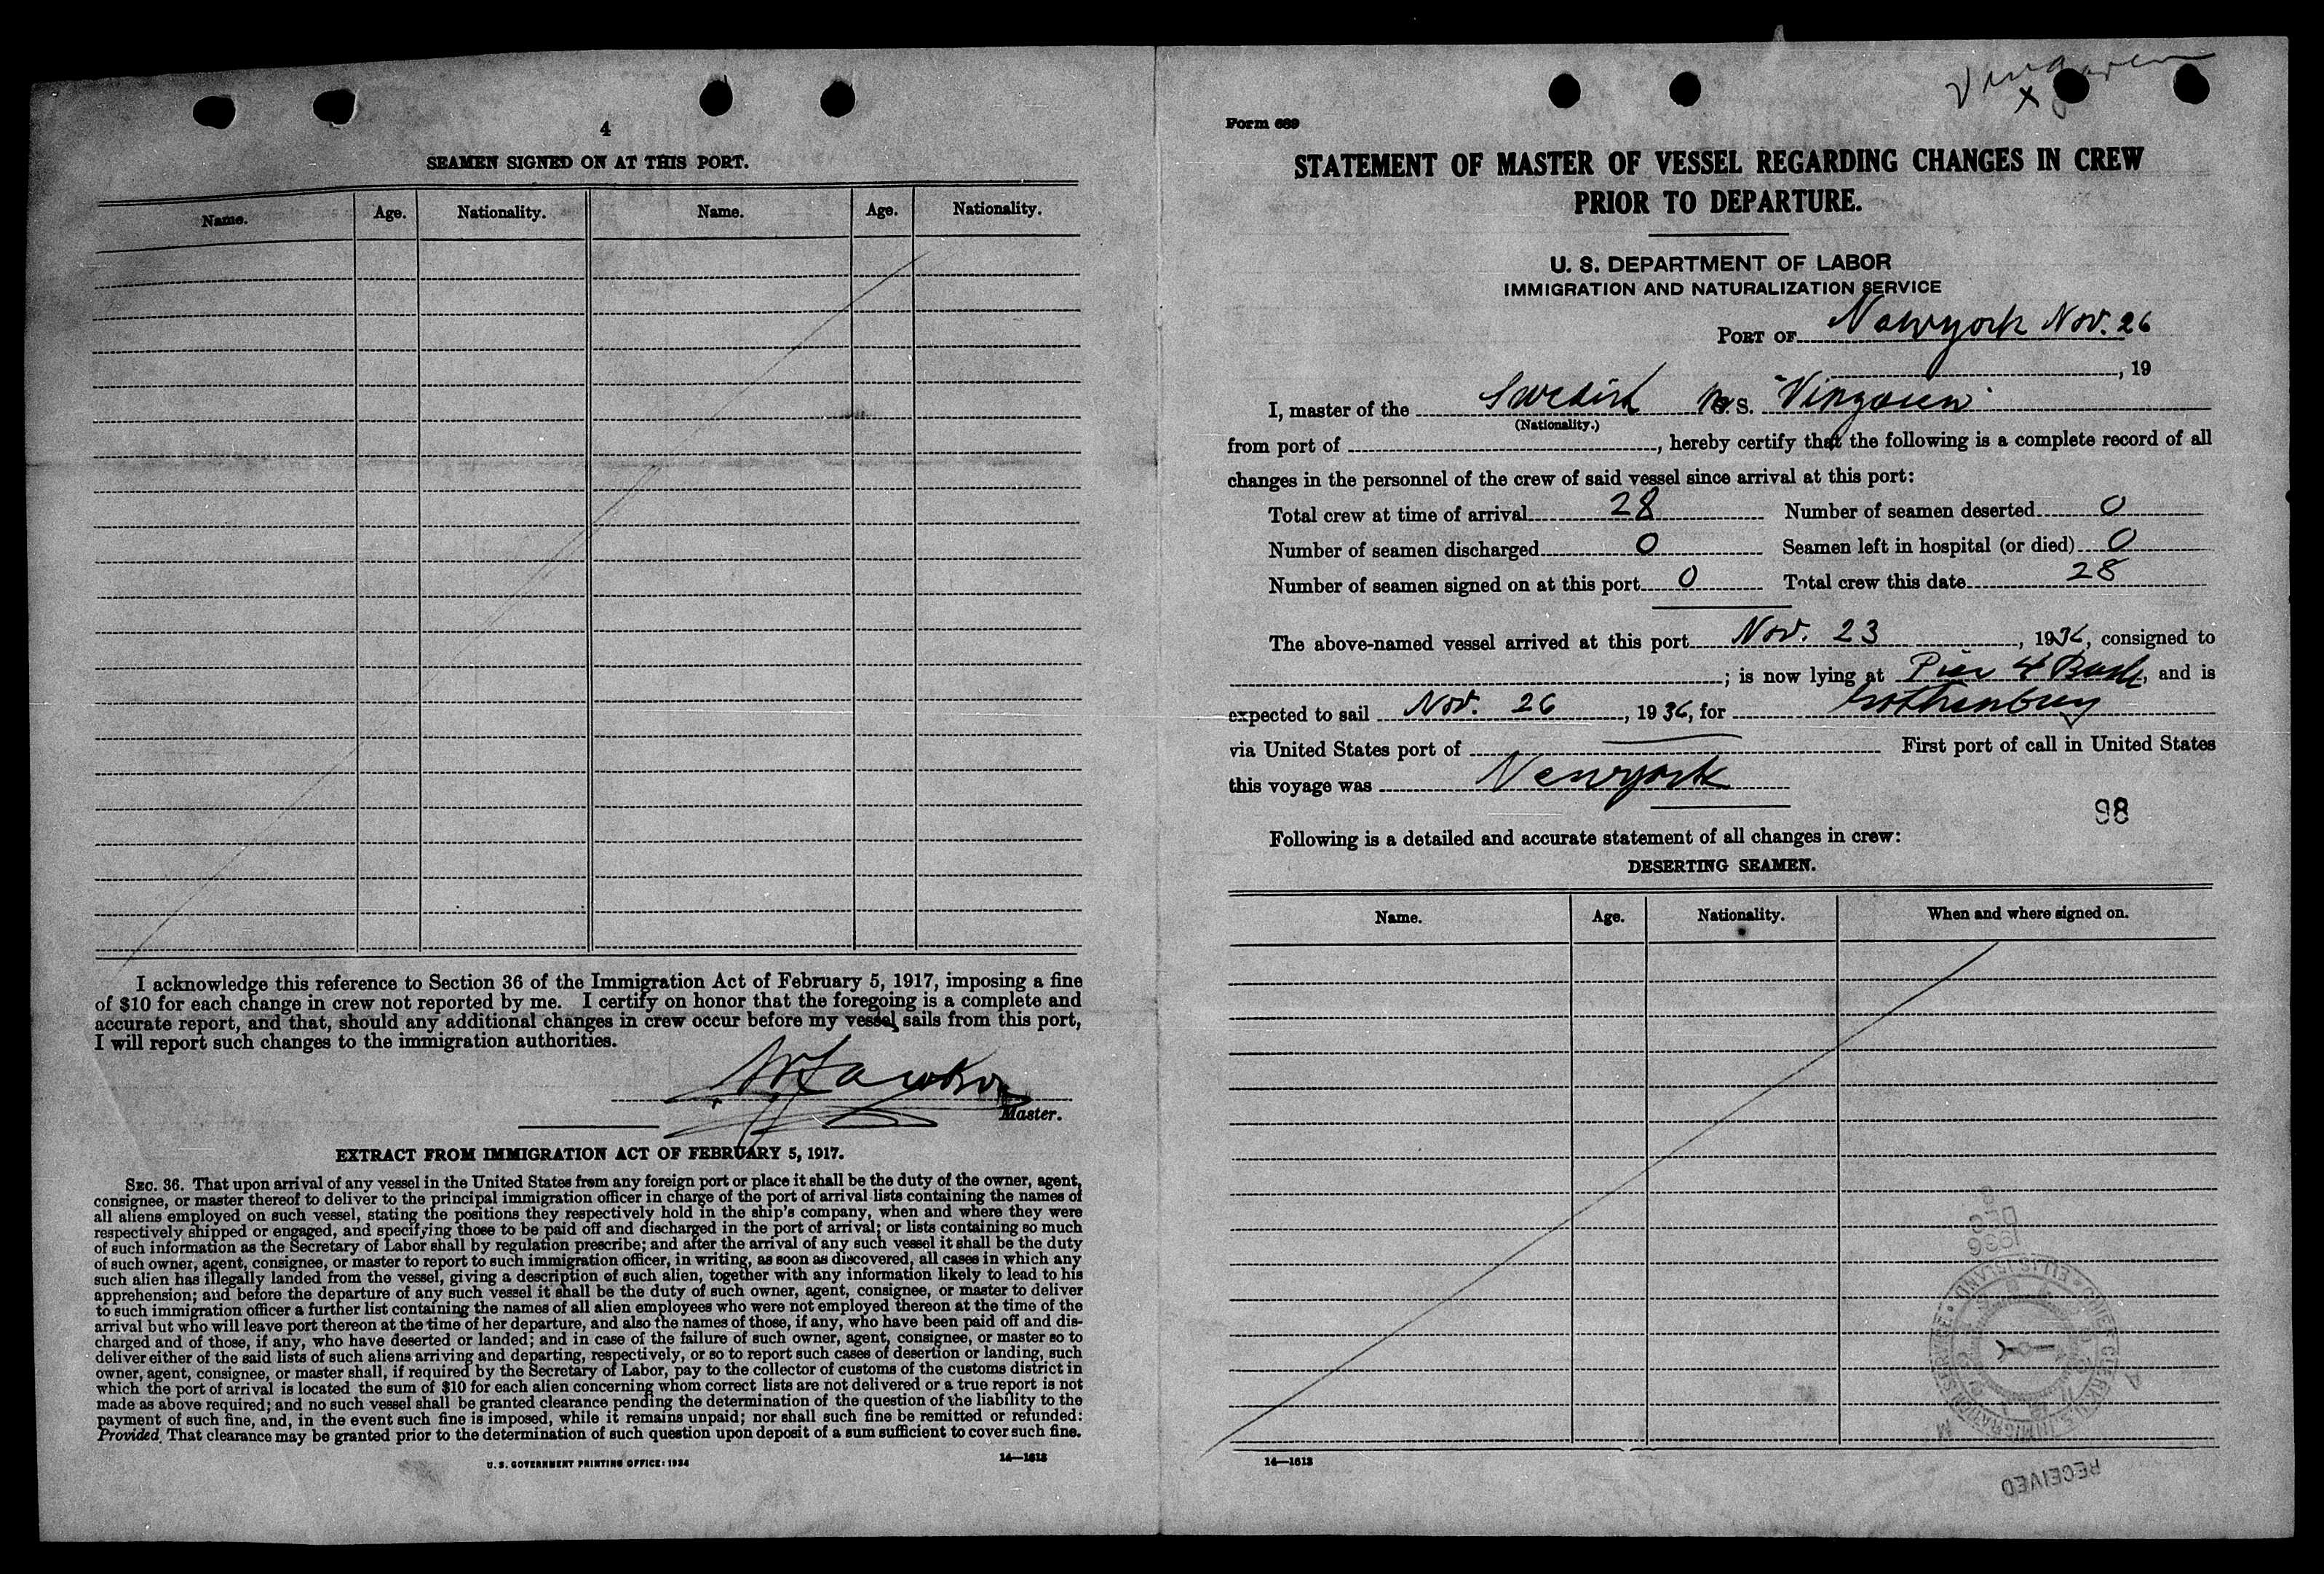 4
SEAMEN SIGNED ON AT THIS PORT.
Name. Age. Nationality. Name. Age. Nationality.
I acknowledge this reference to Section 36 of the Immigration Act of February 5, 1917, imposing a fine
of $10 for each change in crew not reported by me. I certify on honor that the foregoing is a complete and
accurate report, and that, should any additional changes in crew occur before my vessel sails from this port,
I will report such changes to the immigration authorities.
Master.
EXTRACT FROM IMMIGRATION ACT OF FEBRUARY 5, 1917.
SEC. 36. That upon arrival of any vessel in the United States from any foreign port or place it shall be the duty of the owner, agent,
consignee, or master thereof to deliver to the principal immigration officer in charge of the port of arrival lists containing the names of
all aliens employed on such vessel, stating the positions they respectively hold in the ship's company, when and where they were
respectively shipped or engaged, and specifying those to be paid off and discharged in the port of arrival; or lists containing so much
of such information as the Secretary of Labor shall by regulation prescribe; and after the arrival of any such vessel it shall be the duty
of such owner, agent, consignee, or master to report to such immigration officer, in writing, as soon as discovered, all cases in which any
such alien has illegally landed from the vessel, giving a description of such alien, together with any information likely to lead to his
apprehension; and before the departure of any such vessel it shall be the duty of such owner, agent, consignee, or master to deliver
to such immigration officer a further list containing the names of all alien employees who were not employed thereon at the time of the
arrival but who will leave port thereon at the time of her departure, and also the names of those, if any, who have been paid off and dis-
charged and of those, if any, who have deserted or landed; and in case of the failure of such owner, agent, consignee, or master so to
deliver either of the said lists of such aliens arriving and departing, respectively, or so to report such cases of desertion or landing, such
owner, agent, consignee, or master shall, if required by the Secretary of Labor, pay to the collector of customs of the customs district in
which the port of arrival is located the sum of $10 for each alien concerning whom correct lists are not delivered or a true report is not
made as above required; and no such vessel shall be granted clearance pending the determination of the question of the liability to the
payment of such fine, and, in the event such fine is imposed, while it remains unpaid; nor shall such fine be remitted or refunded:
Provided, That clearance may be granted prior to the determination of such question upon deposit of a sum sufficient to cover such fine.
U. S. GOVERNMENT PRINTING OFFICE: 1934 14—1613
Vingaren
x
Form 689
STATEMENT OF MASTER OF VESSEL REGARDING CHANGES IN CREW
PRIOR TO DEPARTURE.
U. S. DEPARTMENT OF LABOR
IMMIGRATION AND NATURALIZATION SERVICE
PORT OF Newyork Nov. 26
, 19
I, master of the Swedish M.S. "Vingaren"
(Nationality.)
from port of , hereby certify that the following is a complete record of all
changes in the personnel of the crew of said vessel since arrival at this port:
Total crew at time of arrival 28 Number of seamen deserted 0
Number of seamen discharged 0 Seamen left in hospital (or died) 0
Number of seamen signed on at this port 0 Total crew this date 28
The above-named vessel arrived at this port Nov. 23, 1936, consigned to
; is now lying at Pier 4 Bush, and is
expected to sail Nov. 26, 1936, for Gothenburg
via United States port of — First port of call in United States
this voyage was Newyork
98
Following is a detailed and accurate statement of all changes in crew:
DESERTING SEAMEN.
Name. Age. Nationality. When and where signed on.
1936
DEC
ELLIS ISLAND
14—1613
RECEIVED